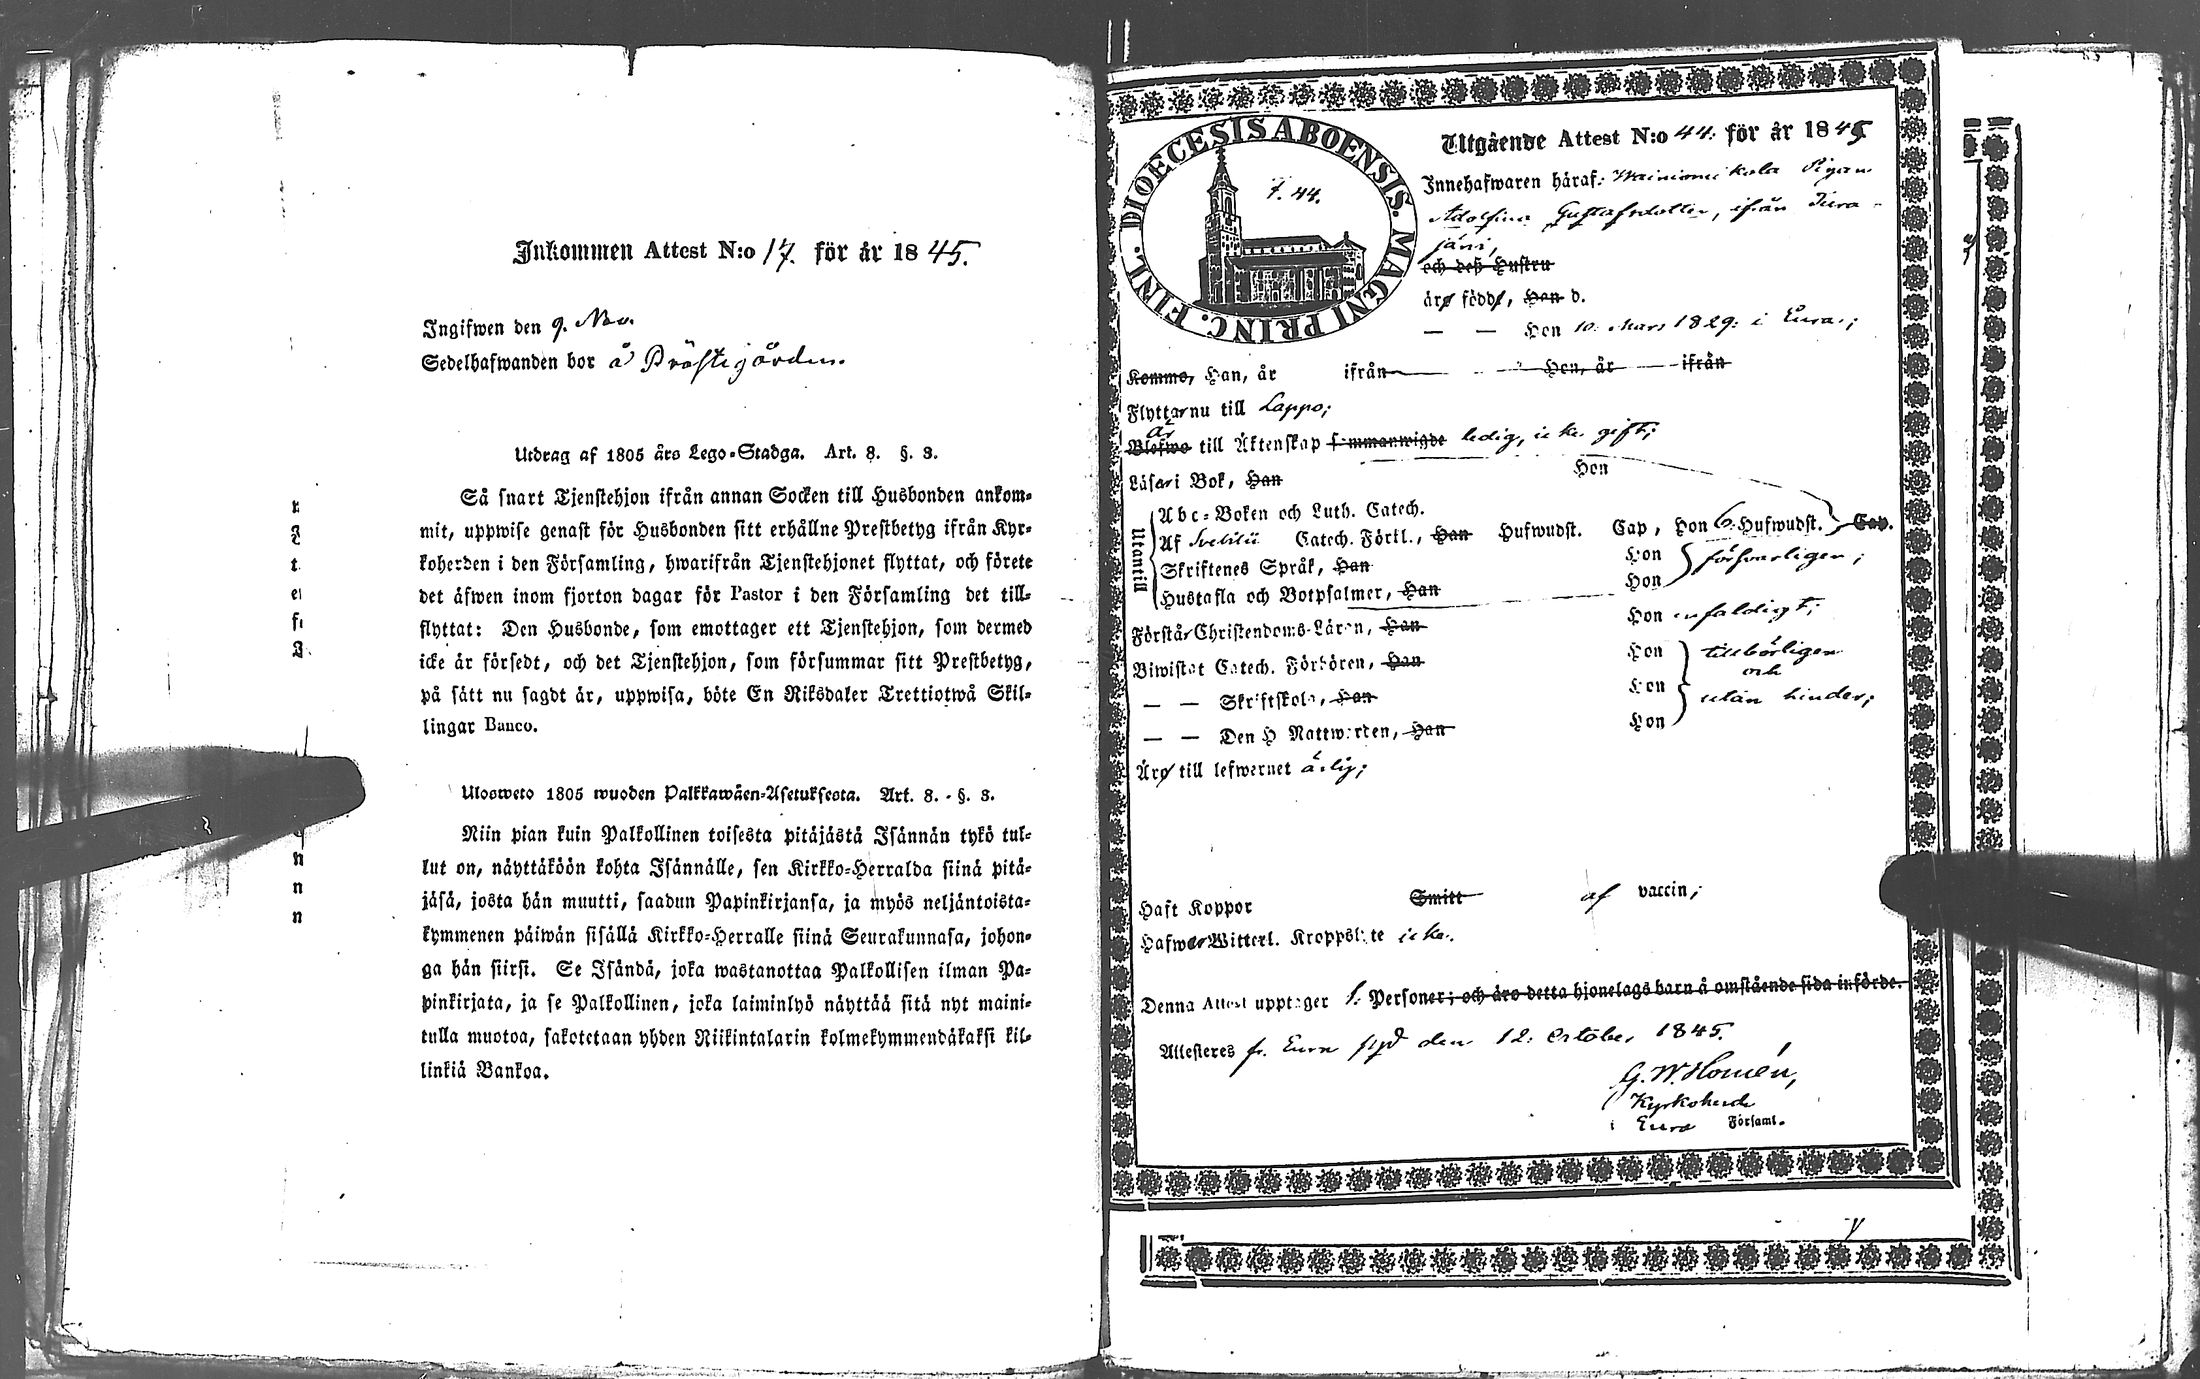 Inkommen Attest N:o 17. för år 1845.
Ingifwen den 9. Nov.
Sedelhafwanden bor å Pröstegården.
Utdrag af 1805 års Lego-Stadga. Art. 8. §. 3.
Så snart Tjenstehjon ifrån annan Socken till Husbonden ankom-
mit, uppwise genast för Husbonden sitt erhållne Prestbetyg ifrån Kyr-
koherden i den Församling, hwarifrån Tjenstehjonet flyttat, och förete
det äfwen inom fjorton dagar för Pastor i den Församling det till-
flyttat: Den Husbonde, som emottager ett Tjenstehjon, som dermed
icke är försedt, och det Tjenstehjon, som försummar sitt Prestbetyg,
på sätt nu sagdt är, uppwisa, böte En Riksdaler Trettiotwå Skil-
lingar Banco.
Ulosweto 1805 wuoden Palkkawäen-Asetuksesta. Art. 8. §. 3.
Niin pian kuin Palkollinen toisesta pitäjästä Isännän tykö tul-
lut on, näyttäköön kohta Isännälle, sen Kirkko-Herralda siinä pitä-
jäsä, josta hän muutti, saadun Papinkirjansa, ja myös neljäntoista-
kymmenen päiwän sisällä Kirkko-Herralle siinä Seurakunnasa, johon-
ga hän siirsi. Se Isändä, joka wastanottaa Palkollisen ilman Pa-
pinkirjata, ja se Palkollinen, joka laiminlyö näyttää sitä nyt maini-
tulla muotoa, sakotetaan yhden Riikintalarin kolmekymmendäkaksi kil-
linkiä Bankoa.
DIOECESIS ABOENSIS. MAGNI PRINC. FINL.
F. 44.
Utgående Attest N:o 44. för år 1845
Innehafwaren häraf: Wainiomikola Pigan
Adolfina Gustafsdotter, ifrån Kiura-
järvi,
och deß Hustru
äro född, Han d.
— — Hon 10. Mars 1829: i Eura;
Komma, Han, år ifrån Hon, år ifrån
Flyttar nu till Lappo;
är
Blefwo till Äktenskap sammanwigde ledig, icke gift;
Läser i Bok, Han Hon
Utantill
Abc-Boken och Luth. Catech.
Af Svebilii Catech. Förkl., Han Hufwudst. Cap, Hon 6. Hufwudst. Cap.
Skriftenes Språk, Han Hon försvarligen;
Hustafla och Botpsalmer, Han Hon
Förstår Christendoms-Läran, Han Hon enfaldigt;
Biwistat Catech. Förhören, Han Hon tillbörligen
och
— — Skriftskola, Han Hon utan hinder;
— — Den H Nattwarden, Han Hon
Äro till lefwernet ärlig;
Haft Koppor Smitt af vaccin;
Hafwer Witterl. Kroppslyte icke.
Denna Attest upptager 1. Personer; och äro detta hjonelags barn å omstående sida införde.
Attesteres fr. Eura den 12. October 1845.
G. W. Homén,
Kyrkoherde
i Eura Församl.